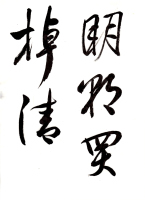 明朝買
棹清